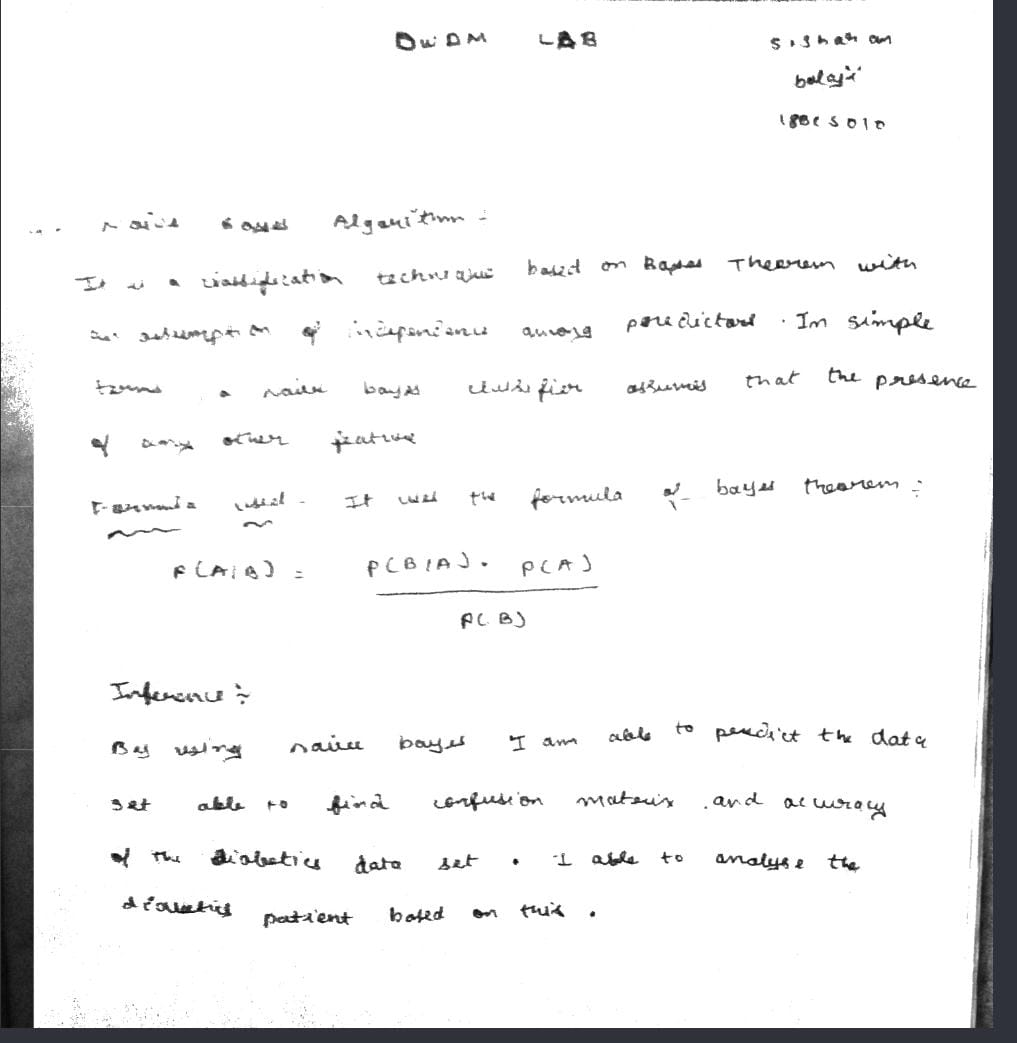 DWDM LAB
balaji
18BCS010
Naive Bayes Algorithm :-
It is a classification technique based on Bayes Theorem with
an assumption of independence among predictors . In simple
terms a naive bayes classifier assumes that the presence
of any other feature
Formula used - It uses the formula of bayes theorem :-
P(A|B) = P(B|A) . P(A)
P(B)
Inference :-
By using naive bayes I am able to predict the data
set able to find confusion matrix . and accuracy
of the diabetics data set . I able to analyse the
diabetics patient based on this .